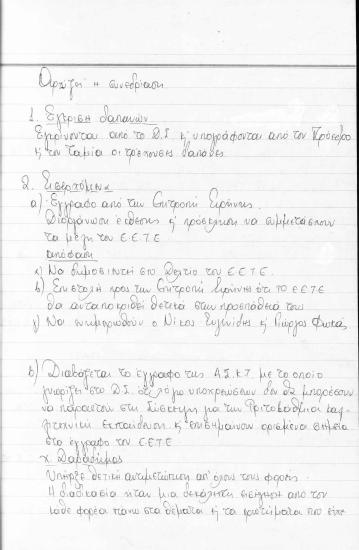 Αρχίζει η συνεδρίαση
1. Έγκριση δαπανών
Εγκρίνονται από το Δ.Σ. κ' υπογράφονται από τον Πρόεδρο
κ τον Ταμία οι τρέχουσες δαπάνες
2. Εισερχόμενα
α) Έγγραφο από την Επιτροπή Ειρήνης.
Διοργάνωση έκθεσης κ' πρόσκληση να συμμετάσχουν
τα μέλη του Ε.Ε.Τ.Ε
απόφαση
α) Να δημοσιευτεί στο δελτίο του Ε.Ε.Τ.Ε.
β) Επιστολή προς την Επιτροπή Ειρήνης ότι το ΕΕΤΕ
θα ανταποκριθεί θετικά στην προσπάθειά τους
γ) Να ενημερωθούν ο Νίκος Ευγενίδης κ Γιώργος Φωκάς
β) Διαβάζεται το έγγραφο της Α.Σ.Κ.Τ. με το οποίο
γνωρίζει στο Δ.Σ. ότι λόγω υποχρεώσεων δεν θα μπορέσουν
να παραστούν στη Σύσκεψη για την Τριτοβάθμια καλ-
λιτεχνική Εκπαίδευση κ επισημαίνουν ορισμένα σημεία
στο έγγραφο του ΕΕΤΕ
Υπήρξε θετική αντιμετώπιση απ' όλους τους φορείς.
Η διαδικασία ήταν μια δεκάλεπτη εισήγηση από τον
κάθε φορέα πάνω στα θέματα κ τα ερωτήματα που είχε